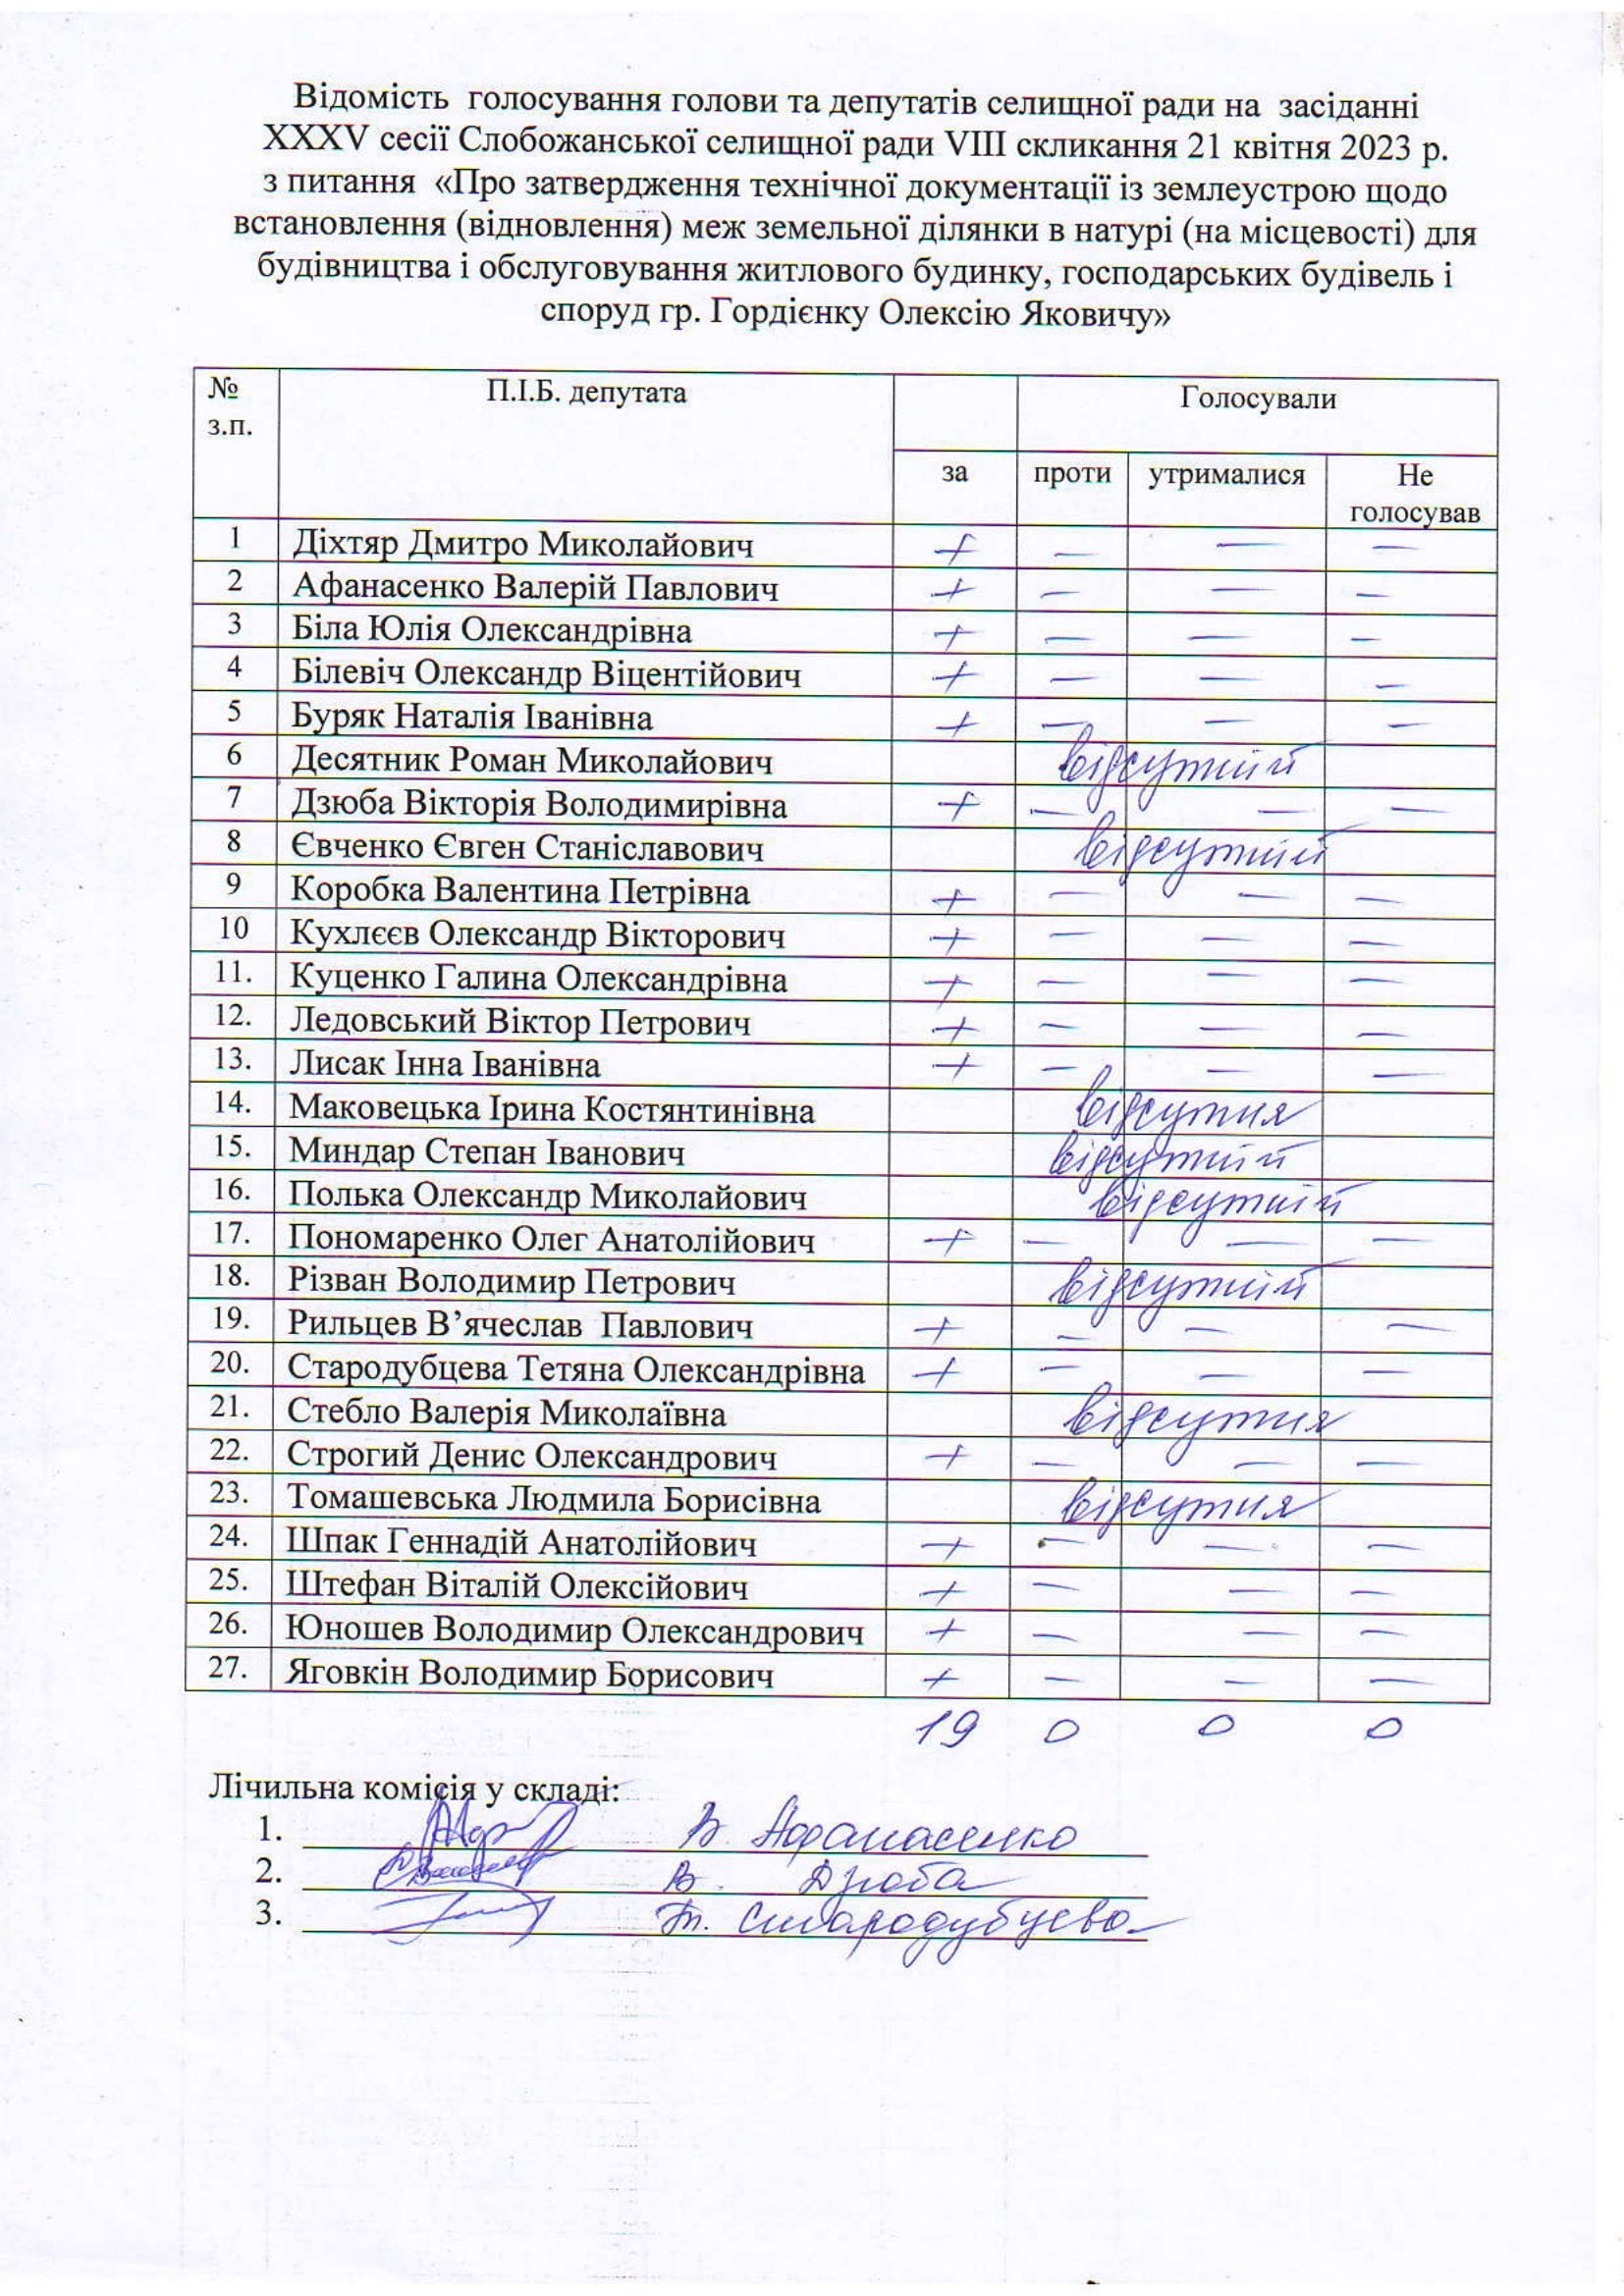 Відомість голосування голови та депутатів селищної ради на засіданні
XXXV сесії Слобожанської селищної ради VIII скликання 21 квітня 2023 р.
з питання «Про затвердження технічної документації із землеустрою щодо
встановлення (відновлення) меж земельної ділянки в натурі (на місцевості) для
будівництва і обслуговування житлового будинку, господарських будівель і
споруд гр. Гордієнку Олексію Яковичу»
№ з.п. П.І.Б. депутата Голосували
за проти утрималися Не голосував
1 Діхтяр Дмитро Миколайович + — — —
2 Афанасенко Валерій Павлович + — — —
3 Біла Юлія Олександрівна + — — —
4 Білевіч Олександр Віцентійович + — — —
5 Буряк Наталія Іванівна + — — —
6 Десятник Роман Миколайович відсутній
7 Дзюба Вікторія Володимирівна + — — —
8 Євченко Євген Станіславович відсутній
9 Коробка Валентина Петрівна + — — —
10 Кухлєєв Олександр Вікторович + — — —
11. Куценко Галина Олександрівна + — — —
12. Ледовський Віктор Петрович + — — —
13. Лисак Інна Іванівна + — — —
14. Маковецька Ірина Костянтинівна відсутня
15. Миндар Степан Іванович відсутній
16. Полька Олександр Миколайович відсутній
17. Пономаренко Олег Анатолійович + — — —
18. Різван Володимир Петрович відсутній
19. Рильцев В’ячеслав Павлович + — — —
20. Стародубцева Тетяна Олександрівна + — — —
21. Стебло Валерія Миколаївна відсутня
22. Строгий Денис Олександрович + — — —
23. Томашевська Людмила Борисівна відсутня
24. Шпак Геннадій Анатолійович + — — —
25. Штефан Віталій Олексійович + — — —
26. Юношев Володимир Олександрович + — — —
27. Яговкін Володимир Борисович + — — —
19 0 0 0
Лічильна комісія у складі:
1. В. Афанасенко
2. В. Дзюба
3. Т. Стародубцева